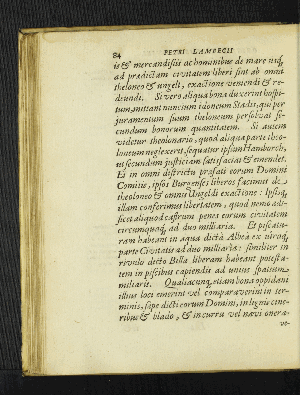 84 PETRI LAMBECII
is & mercandisiis ac hominibus de mare usq;
ad prædictam civitatem liberi sint ab omni
theloneo & ungelt, exactione veniendi & re-
deundi. Si vero aliqua bona duxerint hospi-
tum, mittant nuncium idoneum Stadis, qui per
juramentum suum theloneum persolvat se-
cundum bonorum quantitatem. Si autem
videtur theloneario, quod aliqua parte theo-
loneum neglexerit, sequatur ipsum Hamborch,
ut secundum justiciam satisfaciat & emendet.
Et in omni districtu profati eorum Domini
Comitis, ipsos Burgenses liberos facimus de
theoloneo & omni Ungeldi exactione: Ipsisq;
illam conferimus libertatem, quod nemo ædi-
ficet aliquod castrum penes eorum civitatem
circumquaq; ad duo milliaria. Et piscatu-
ram habeant in aqua dicta Albea ex utraq;
parte Civitatis ad duo milliaria: similiter in
rivulo dicto Billa liberam habeant potesta-
tem in piscibus capiendis ad unius spatium
miliaris. Qualiacunq; etiam bona oppidani
illius loci emerint vel comparaverint in ter-
minis, sæpe dicti eorum Domini, in lignis cine-
ribus & blado, & in curru vel navi onera-
ve-